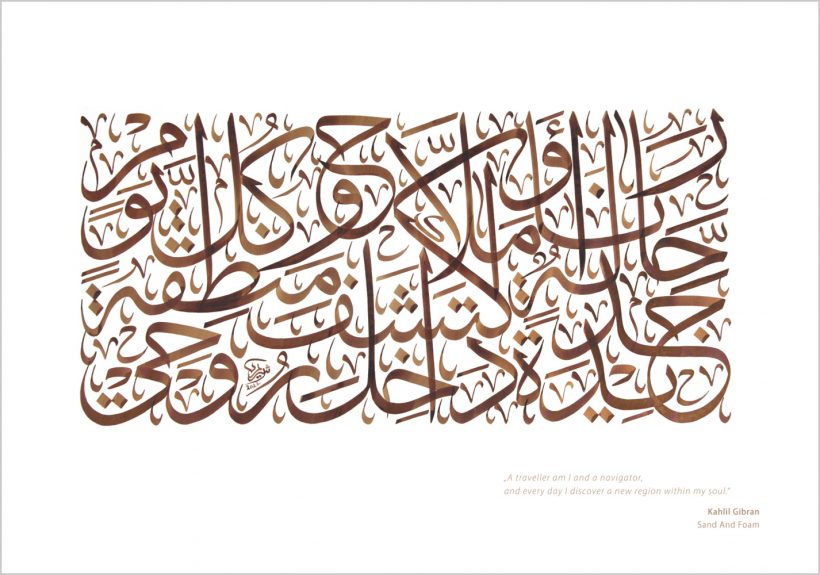 رحّالةٌ أنا وملاّح وكلّ يومٍ
اكتشف منطقة
جديدة داخل روحي
„A traveller am I and a navigator,
and every day I discover a new region within my soul.“
Kahlil Gibran
Sand And Foam